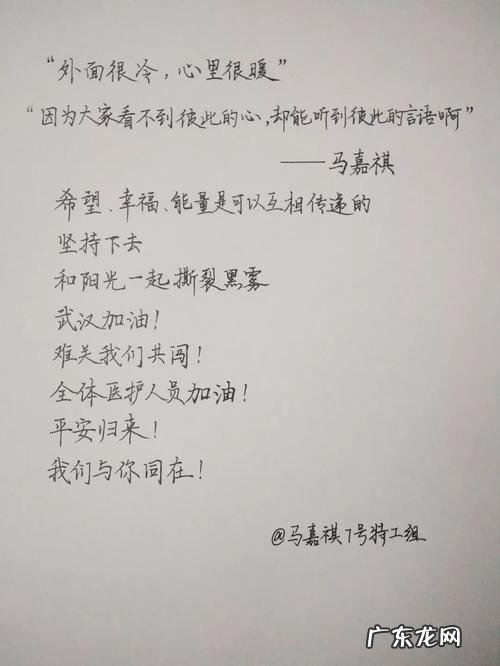 “外面很冷，心里很暖”
“因为大家看不到彼此的心,却能听到彼此的言语啊”
——马嘉祺
希望、幸福、能量是可以互相传递的
坚持下去
和阳光一起撕裂黑雾
武汉加油！
难关我们共闯！
全体医护人员加油！
平安归来！
我们与你同在！
@马嘉祺7号特工组
广东龙网